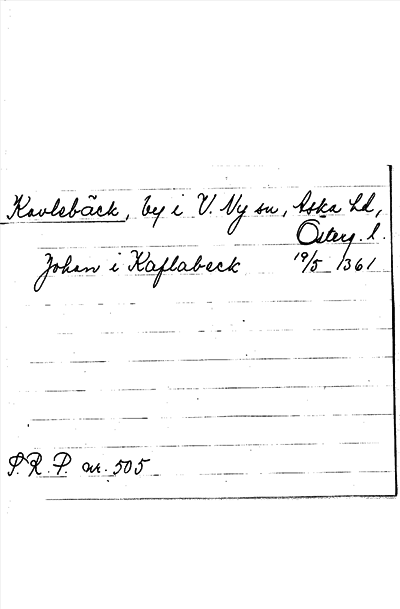 Kavlsbäck, by i V. Ny sn, Aska hd,
Österg. l.
Johan i Kaflabeck 19/5 1361
S. R. P. nr. 505